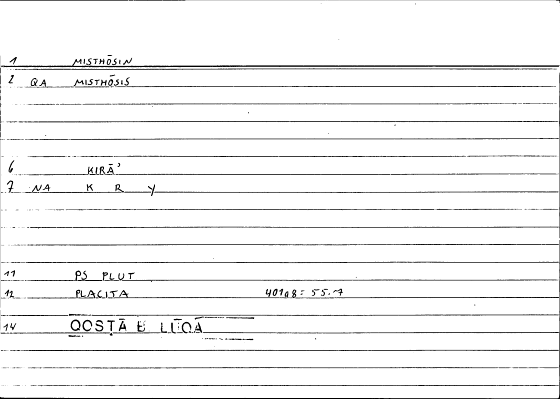 1 MISTHŌSIN
2 QA MISTHŌSIS
6 KIRĀʾ
7 NA K R Y
11 PS PLUT
12 PLACITA 40108: 55.7
14 QOSṬĀ B LŪQĀ